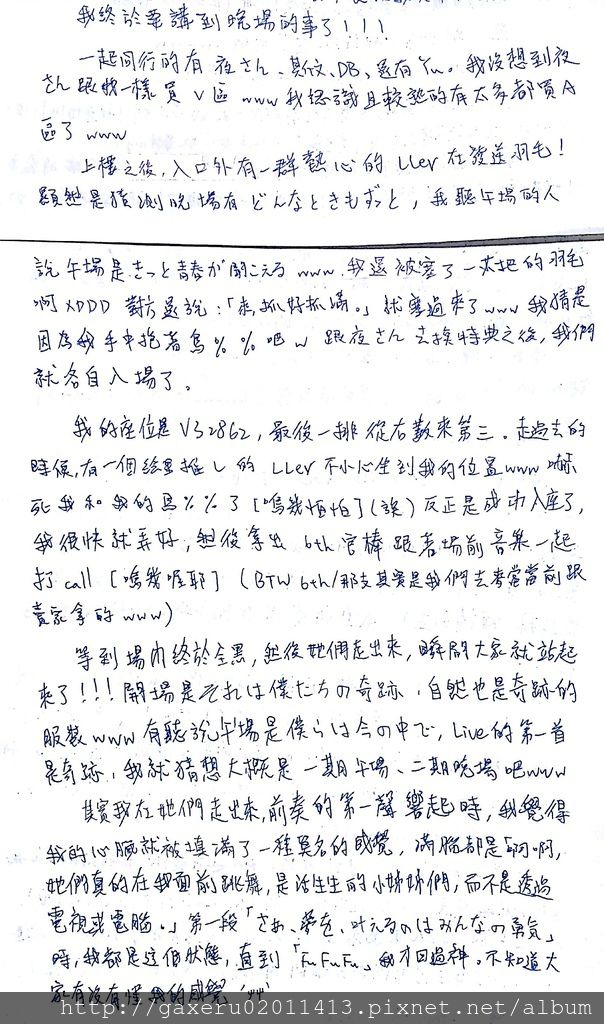 我終於要講到晚場的事了!!!
一起同行的有 夜さん、其文、DB、還有Yu。我沒想到夜
さん跟我一樣買V區 www 我認識且較熟的有太多都買A
區了 www
上樓之後,入口外有一群熱心的LLer在發送羽毛!
顯然是猜測晚場有 どんなときもずっと,我聽午場的人
說午場是きっと青春が聞こえる www 我還被塞了一大把的羽毛
啊XDDD 對方還說:「來,抓好抓滿。」就塞過來了www 我猜是
因為我手中抱著鳥%%吧w 跟夜さん去換特典之後,我們
就各自入場了。
我的座位是V32862,最後一排從右數來第三。走過去的
時候,有一個繪里推し的LLer不小心坐到我的位置www 嚇
死我和我的鳥%%了[嗚幾怕怕](誤) 反正是成功入座了,
我很快就弄好,然後拿出 6th官棒跟著場前音樂一起
打call [嗚幾喔耶] (BTW 6th那支其實是我們去考當當前跟
賣家拿的www)
等到場內終於全黑,然後她們走出來,瞬間大家就站起
來了!!!開場是それは僕たちの奇跡,自然也是奇跡的
服裝www 有聽說午場是僕らは今の中で,Live的第一首
是奇跡,我就猜想大概是一期午場、二期晚場吧www
其實我在她們走出來,前奏的第一聲響起時,我覺得
我的心臟就被填滿了一種莫名的感覺,滿腦都是「啊啊,
她們真的在我面前跳舞,是活生生的小姊姊們,而不是透過
電視或電腦。」第一段「さあ、夢を、叶えるのはみんなの勇気」
時,我都是這個狀態,直到「FuFuFu」我才回過神。不知道大
家有沒有懂我的感覺
http://gaxeru02011413.pixnet.net/album